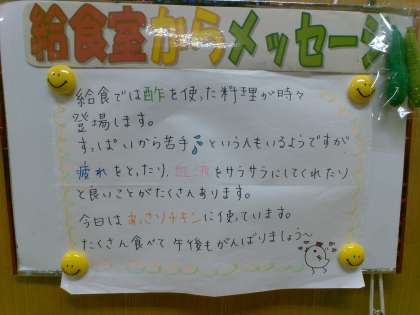 給食室からメッセージ
給食では酢を使った料理が時々
登場します。
すっぱいから苦手という人もいるようですが
疲れをとったり、血液をサラサラにしてくれたり
と良いことがたくさんあります。
今日はあっさりチキンに使っています。
たくさん食べて午後もがんばりましょう〜